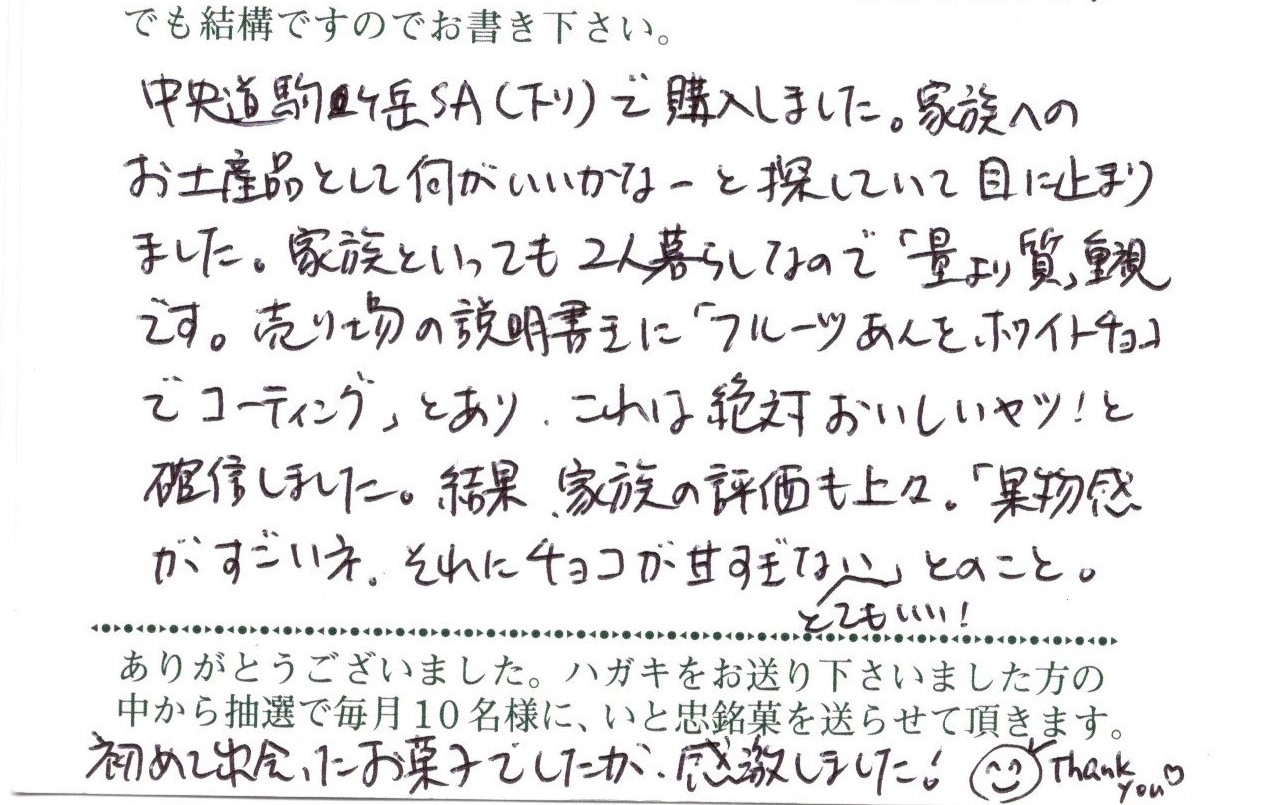 でも結構ですのでお書き下さい。
中央道駒ヶ岳SA(下り)で購入しました。家族への
お土産品として何がいいかなーと探していて目に止まり
ました。家族といっても2人暮らしなので「量より質」重視
です。売り場の説明書きに「フルーツあんを、ホワイトチョコ
でコーティング」とあり、これは絶対おいしいヤツ!と
確信しました。結果、家族の評価も上々。「果物感
がすごいネ。それにチョコが甘すぎない」とのこと。
とてもいい!
ありがとうございました。ハガキをお送り下さいました方の
中から抽選で毎月10名様に、いと忠銘菓を送らせて頂きます。
初めて出会ったお菓子でしたが、感激しました! Thank
you♡